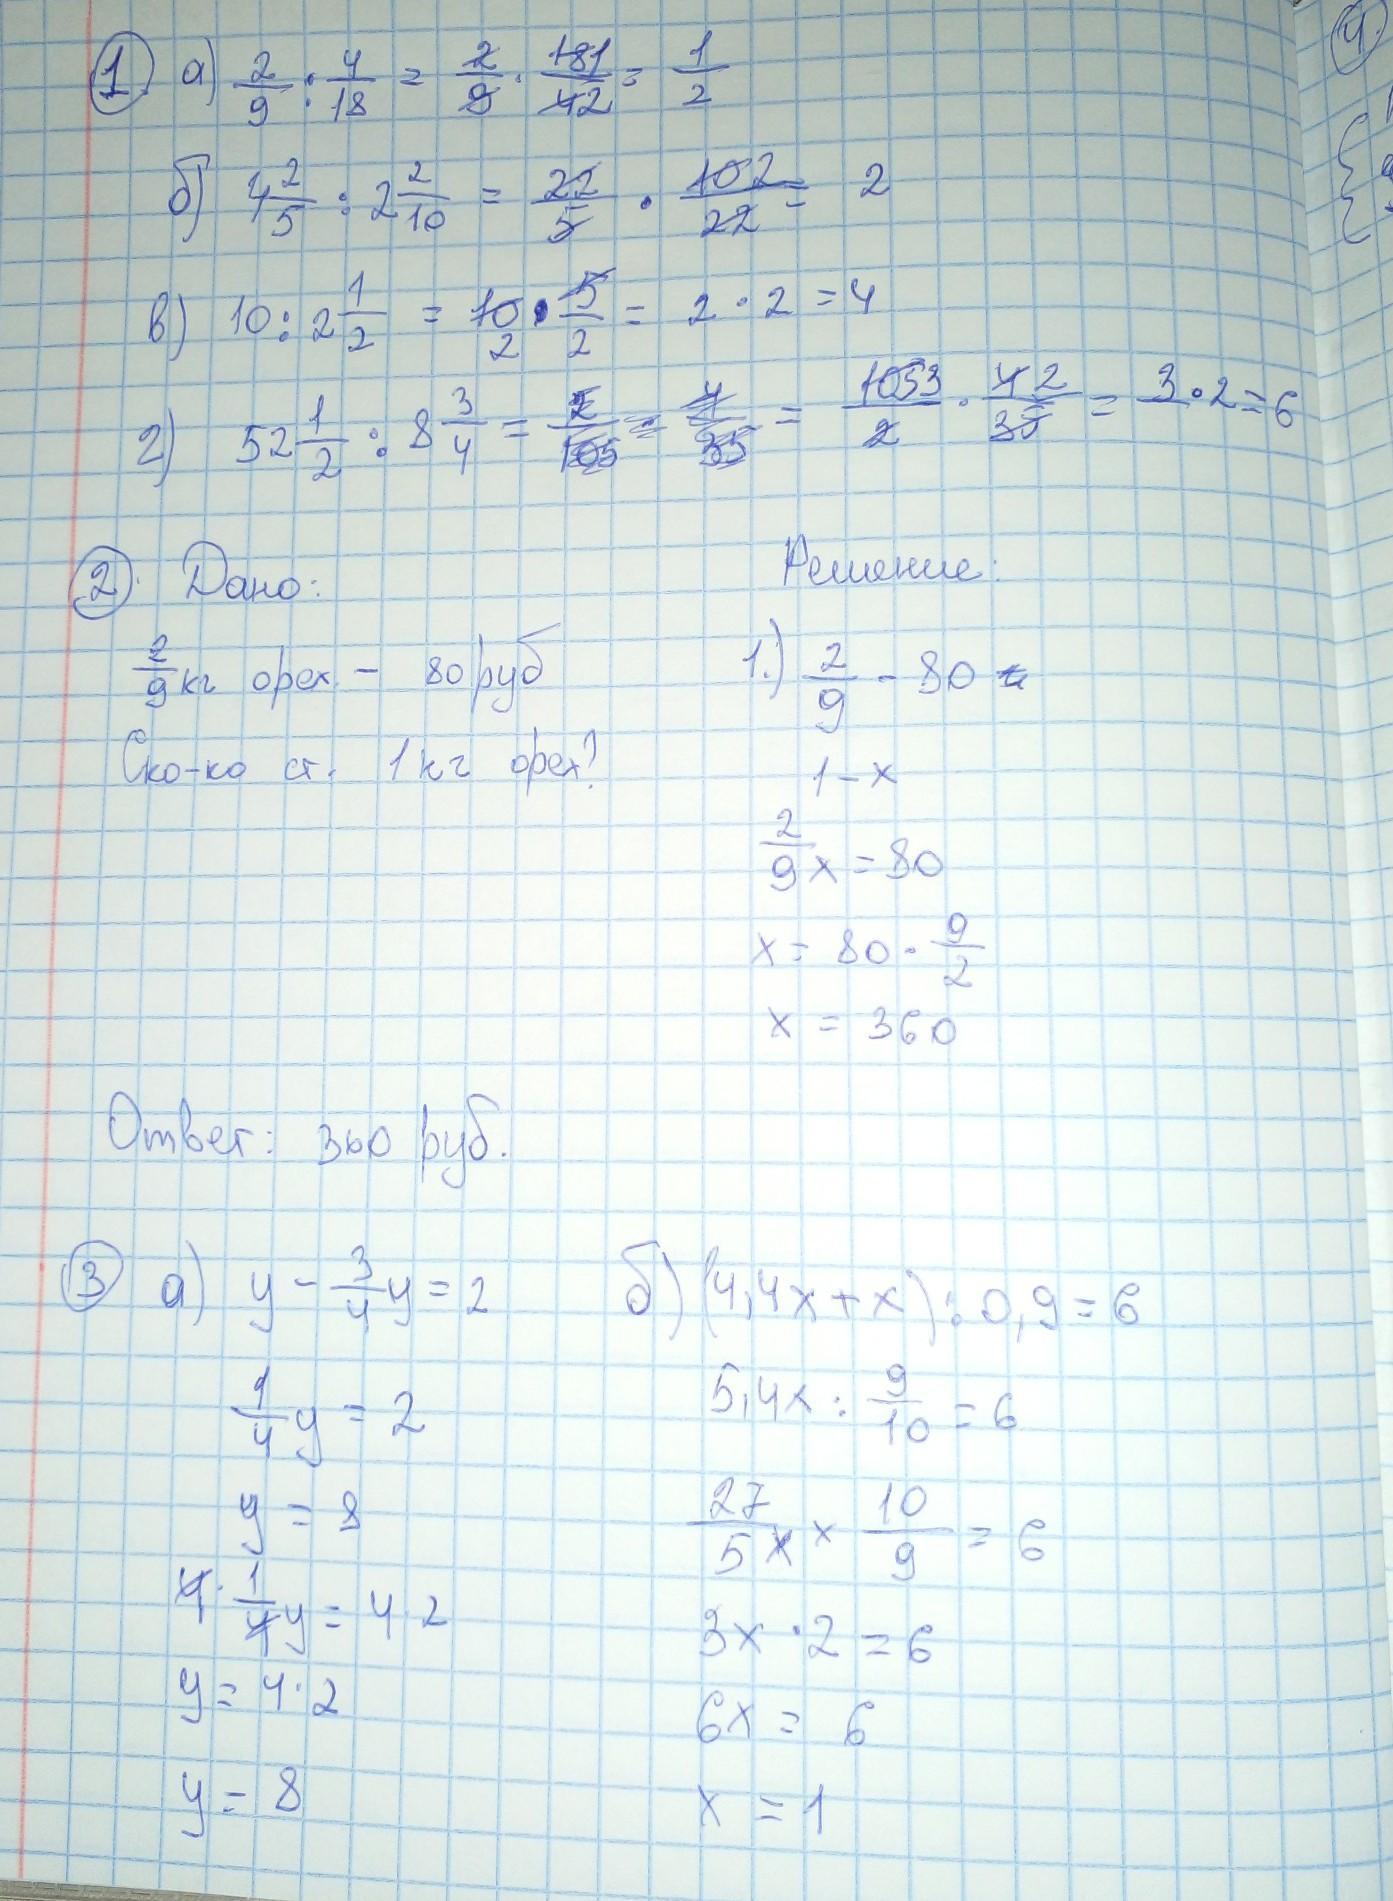 1 а) 2/9 : 4/18 = 2/9 · 181/42 = 1/2
б) 4 2/5 : 2 2/10 = 22/5 · 102/22 = 2
в) 10 : 2 1/2 = 10/2 · 5/2 = 2 · 2 = 4
г) 52 1/2 : 8 3/4 = 2/105 = 4/35 = 1053/2 · 42/35 = 3 · 2 = 6
2. Дано:
2/9 кг орех. - 80 руб
Ско-ко ст. 1 кг орех?
Решение:
1.) 2/9 - 80
1 - x
2/9 x = 80
x = 80 · 9/2
x = 360
Ответ: 360 руб.
3 а) y - 3/4 y = 2
1/4 y = 2
y = 8
4 · 1/4 y = 4 · 2
y = 4 · 2
y = 8
б) (4,4x + x) : 0,9 = 6
5,4x : 9/10 = 6
27/5 x × 10/9 = 6
3x · 2 = 6
6x = 6
x = 1
4